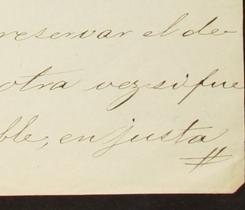 reservar el de
otra vez si fue
ble, en justa